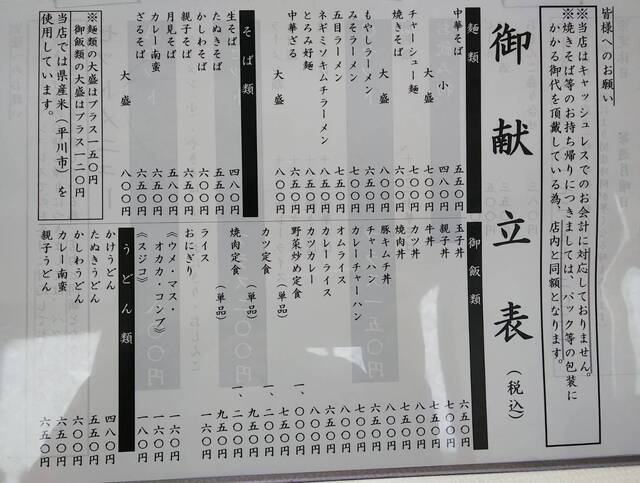 皆様へのお願い
※当店はキャッシュレスでのお会計に対応しておりません。
※焼きそば等のお持ち帰りにつきましては、パック等の包装に
かかる御代を頂戴している為、店内と同額となります。
御献立表(税込)
麺類
中華そば 五五〇円
小
大盛
チャーシュー麺
焼きそば 六〇〇円
大盛
もやしラーメン
みそラーメン
五目ラーメン
ネギミソキムチラーメン
とろみ好麺
中華ざる
大盛 八〇〇円
そば類
生そば 四八〇円
たぬきそば 五五〇円
かしわそば 六〇〇円
親子そば 六五〇円
月見そば 五八〇円
カレー南蛮 六五〇円
ざるそば 六五〇円
大盛 八〇〇円
※麺類の大盛はプラス一五〇円
御飯類の大盛はプラス一二〇円
当店では県産米(平川市)を
使用しています。
御飯類
玉子丼 六〇〇円
親子丼
牛丼
カツ丼
焼肉丼
豚キムチ丼
チャーハン
カレーチャーハン
オムライス
カレーライス
カツカレー
野菜炒め定食 一、〇〇〇円
(単品) 七五〇円
カツ定食 一、二〇〇円
(単品) 九五〇円
焼肉定食 一、二〇〇円
(単品) 九五〇円
ライス 一六〇円
おにぎり
《ウメ・マス・
オカカ・コンブ》 一六〇円
《スジコ》 一八〇円
うどん類
かけうどん 四八〇円
たぬきうどん 五五〇円
かしわうどん 六〇〇円
カレー南蛮 六五〇円
親子うどん 六五〇円